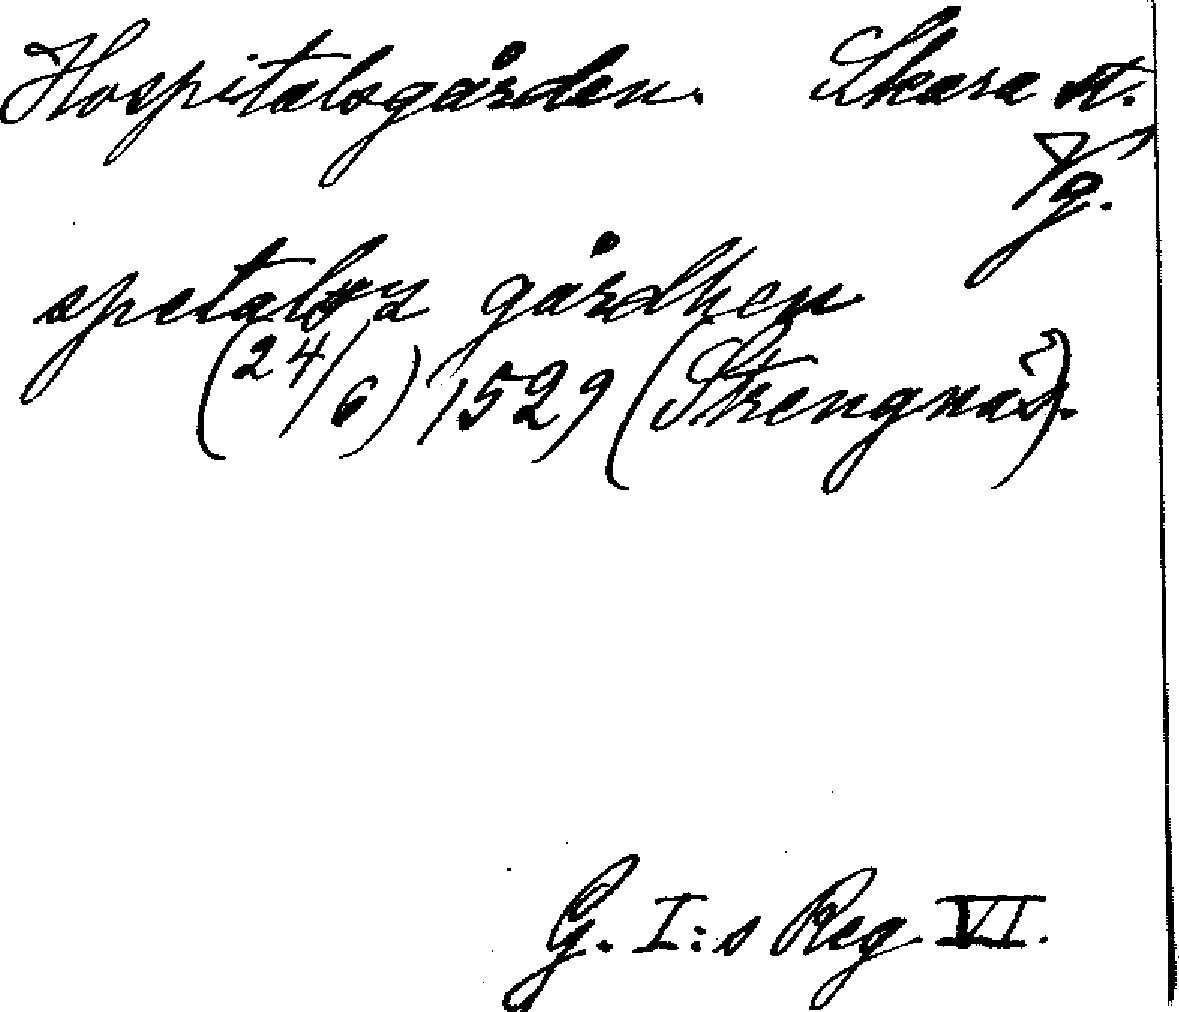 Hospitalsgården. Skara st.
Vg.
gårdhen
(24/6) 1529 (Strengnäs).
G. I:s Reg VI.